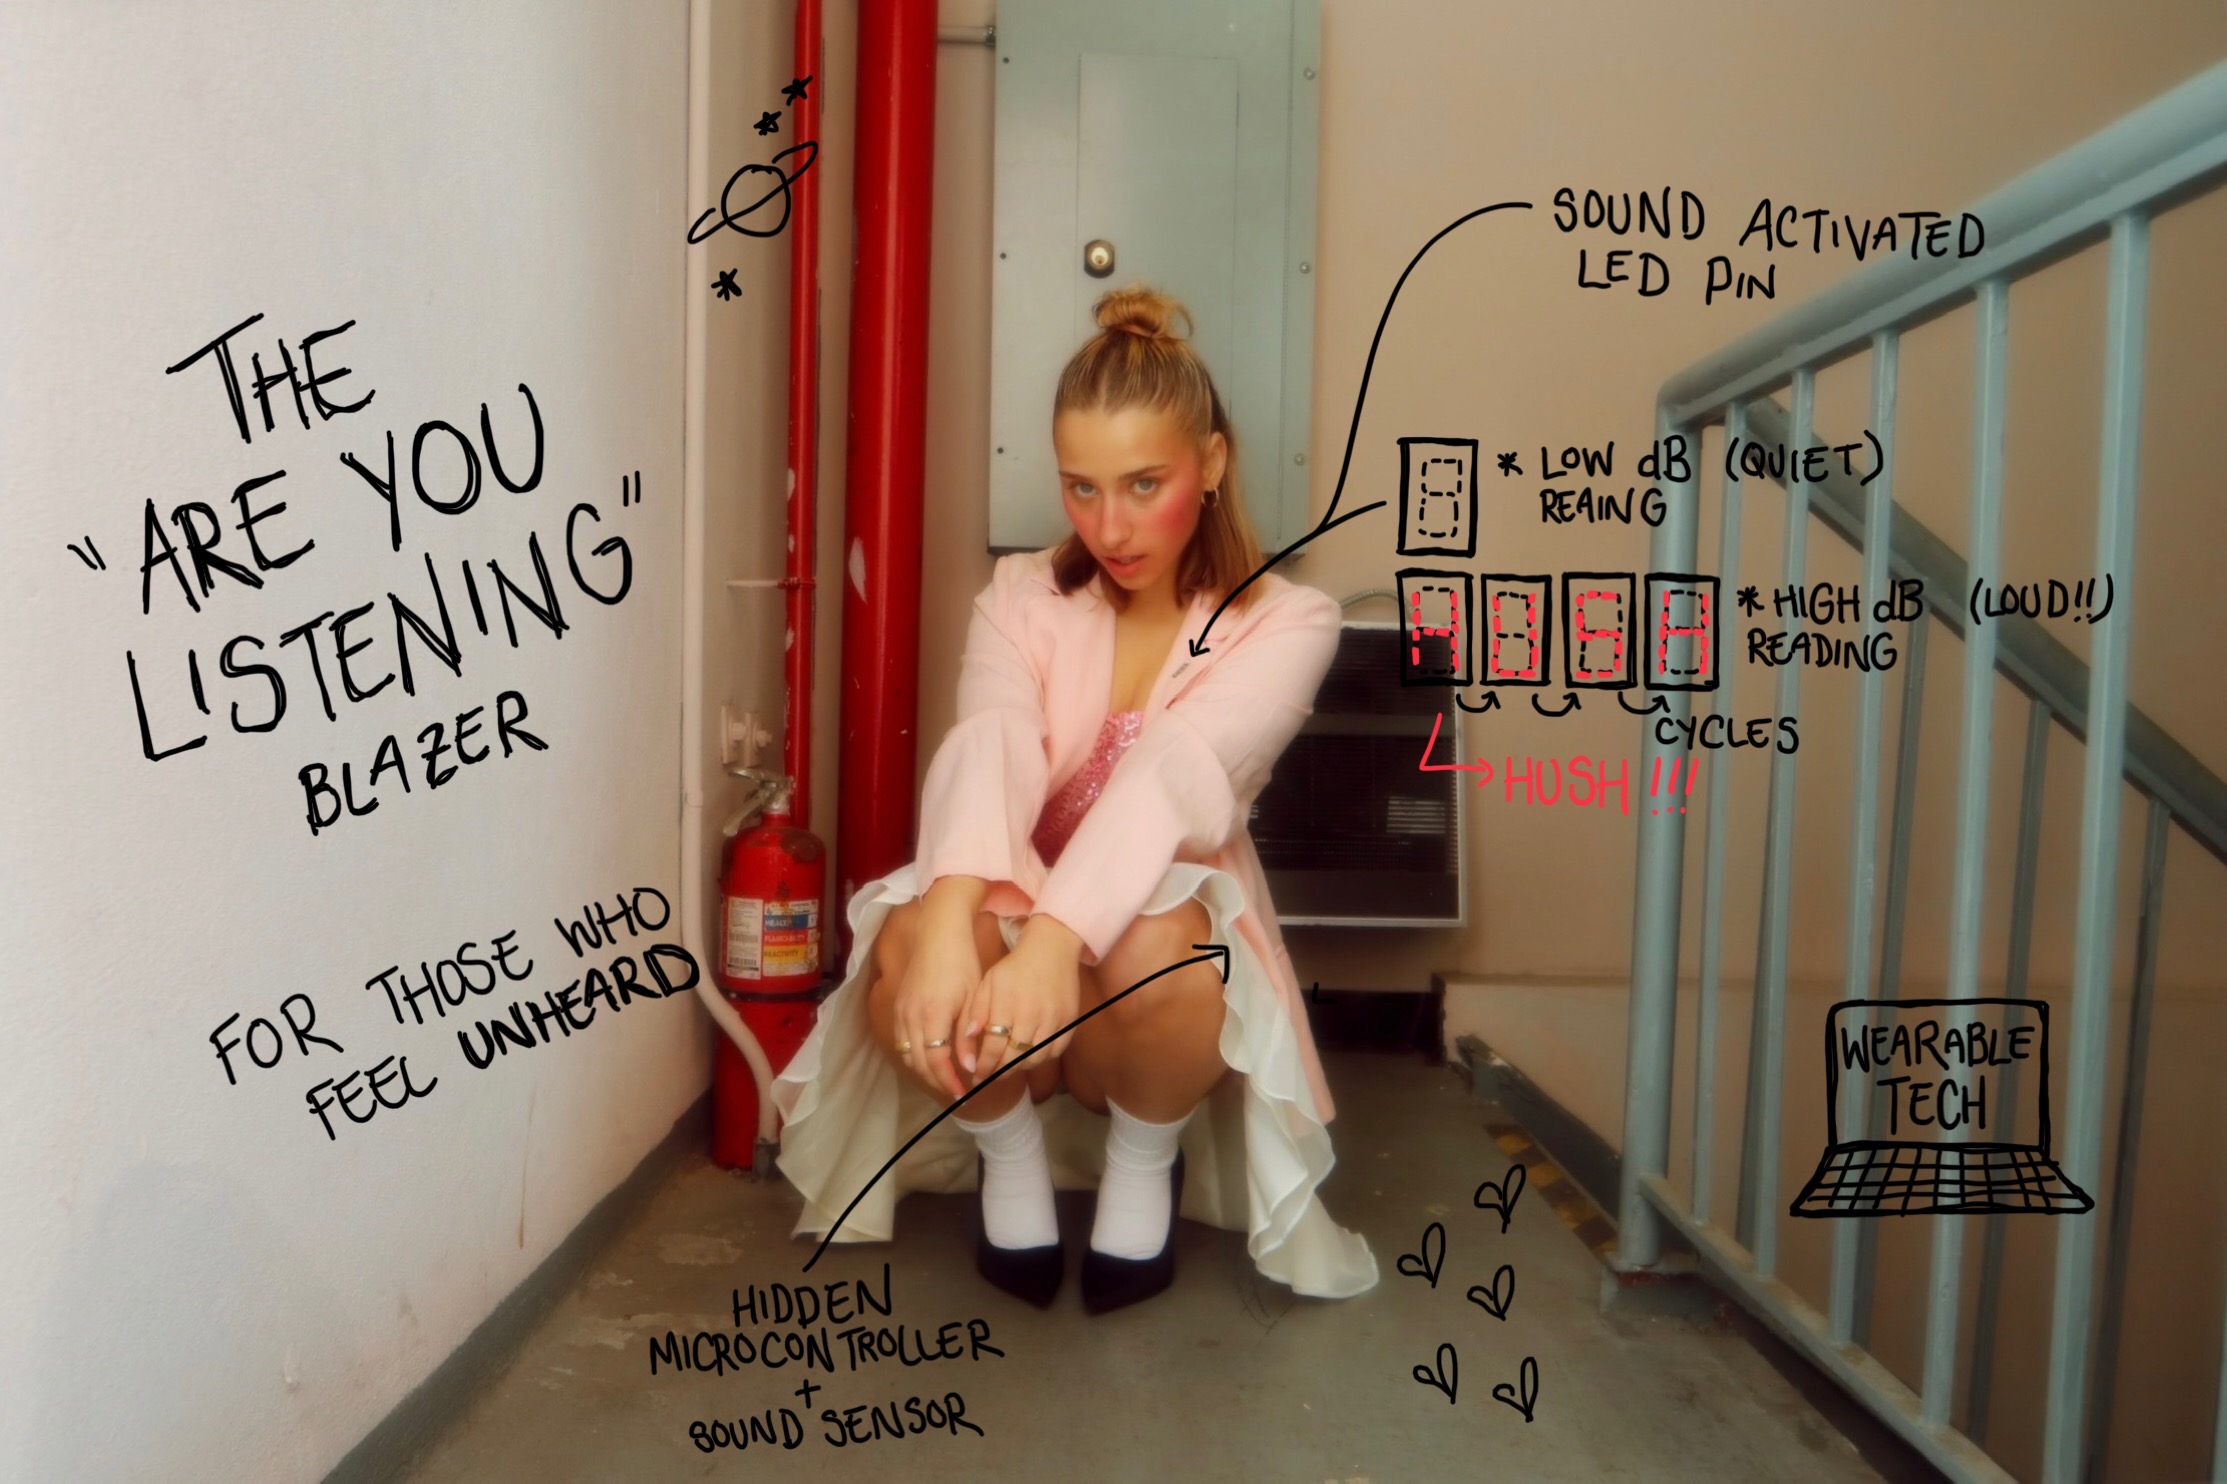 THE
"ARE YOU
LISTENING"
BLAZER
FOR THOSE WHO
FEEL UNHEARD
SOUND ACTIVATED
LED PIN
* LOW dB (QUIET)
REAING
* HIGH dB (LOUD!!)
READING
CYCLES
HUSH!!!
WEARABLE
TECH
HIDDEN
MICROCONTROLLER
+
SOUND SENSOR
HEALTH
FLAMMABILITY
REACTIVITY